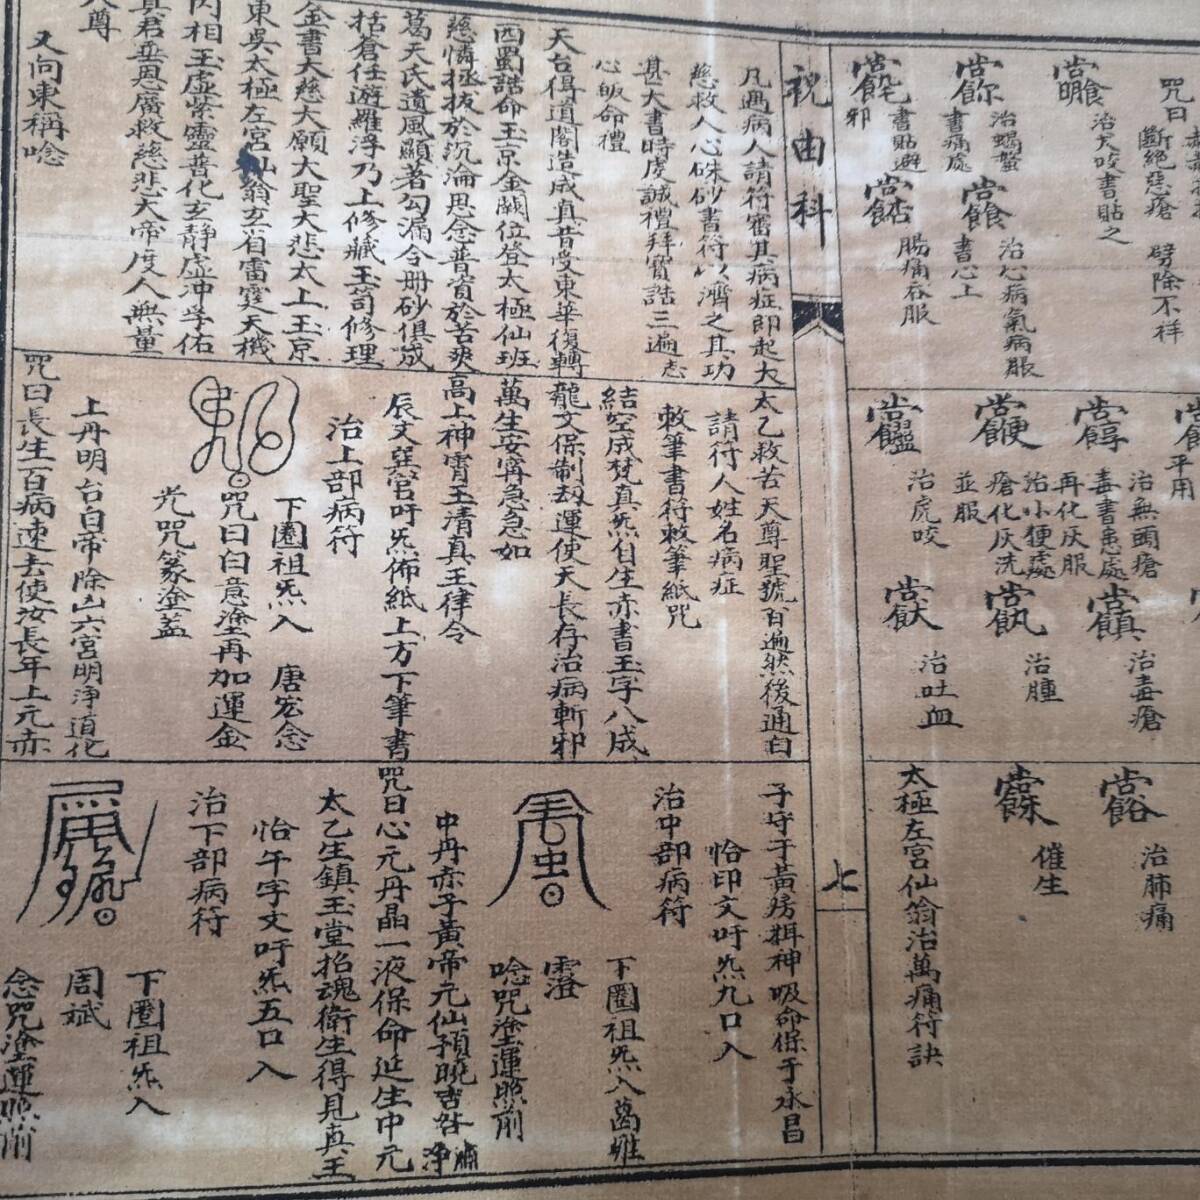 咒曰
斷絕惡瘡
劈除不祥
治犬咬書貼之
治蝎蜇
書痛處
治心病氣病服
書心上
書貼避
邪
腸痛吞服
平用
治無頭瘡
毒書患處
再化灰服
治毒瘡
治小便處
瘡化灰洗
並服
治腫
治虎咬
治吐血
治肺痛
催生
太極左宮仙翁治萬痛符訣
祝由科
七
凡遇病人請符審其病症即起大
慈救人心硃砂書符以濟之其功
甚大書時虔誠禮拜寶誥三遍志
心皈命禮
天台得道閣造成真昔受東華復轉
西蜀誥命玉京金闕位登太極仙班
慈憐拯拔於沉淪思念普資於苦爽
葛天氏遺風顯著勾漏令丹砂俱成
括倉任遊羅浮乃上修藏玉笥修理
金書大慈大願大聖大悲太上玉京
東吳太極左宮仙翁玄省雷霆天機
內相玉虛紫靈普化玄靜虛沖孚佑
真君垂恩廣救慈悲大帝度人無量
天尊
又向東稱唸
太乙救苦天尊聖號百遍然後通白
請符人姓名病症
敕筆書符敕筆紙咒
結空成梵真炁自生赤書玉字八威
龍文保制刼運使天長存治病斬邪
萬生安寧急急如
高上神霄玉清真王律令
辰文巽宮吁炁佈紙上方下筆書
治上部病符
下圈祖炁入 唐宏念
咒曰白意塗再加運金
光咒篆塗蓋
上丹明台白帝除凶六宮明淨道化
咒曰長生百病速去使汝長年上元赤
子守于黃房拜神吸命保于永昌
怡印文吁炁九口入
治中部病符
下圈祖炁入葛雍
唸咒塗運照前
中丹赤子黃帝元仙預曉吉咎
咒曰心元丹晶一液保命延生中元
太乙生鎮玉堂招魂衛生得見真王
怡午字文吁炁五口入
治下部病符
下圈祖炁入
周斌
念咒塗運照前